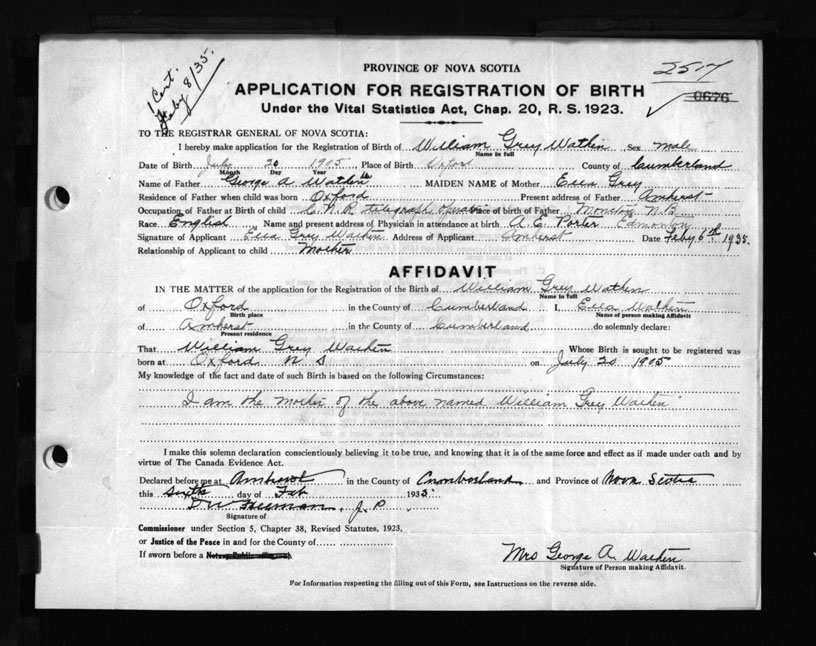 1 Cert.
Feby 8/35.
2517
0676
PROVINCE OF NOVA SCOTIA
APPLICATION FOR REGISTRATION OF BIRTH
Under the Vital Statistics Act, Chap. 20, R. S. 1923.
TO THE REGISTRAR GENERAL OF NOVA SCOTIA:
I hereby make application for the Registration of Birth of William Grey Watkin Sex male
Name in full
Date of Birth July 20 1905, Place of Birth Oxford County of Cumberland
Month Day Year
Name of Father George A Watkin MAIDEN NAME of Mother Ella Grey
Residence of Father when child was born Oxford Present address of Father Amherst
Occupation of Father at Birth of child C.N.R. telegraph operator Place of birth of Father Moncton N.B.
Race English Name and present address of Physician in attendance at birth A. E. Porter Edmonton
Signature of Applicant Ella Grey Watkin Address of Applicant Amherst Date Feby 6th 1935.
Relationship of Applicant to child Mother
AFFIDAVIT
IN THE MATTER of the application for the Registration of the Birth of William Grey Watkin
Name in full
of Oxford in the County of Cumberland I, Ella Watkin
Birth place Name of person making Affidavit
of Amherst in the County of Cumberland do solemnly declare:
Present residence
That William Grey Watkin Whose Birth is sought to be registered was
born at Oxford N S on July 20 1905
My knowledge of the fact and date of such Birth is based on the following Circumstances:
I am the mother of the above named William Grey Watkin
I make this solemn declaration conscientiously believing it to be true, and knowing that it is of the same force and effect as if made under oath and by
virtue of The Canada Evidence Act.
Declared before me at Amherst in the County of Cumberland and Province of Nova Scotia
this sixth day of Feb 1935
Freeman, J. P.
Signature of
Commissioner under Section 5, Chapter 38, Revised Statutes, 1923,
or Justice of the Peace in and for the County of
If sworn before a Notary Public
Mrs George A. Watkin
Signature of Person making Affidavit.
For Information respecting the filling out of this Form, see Instructions on the reverse side.